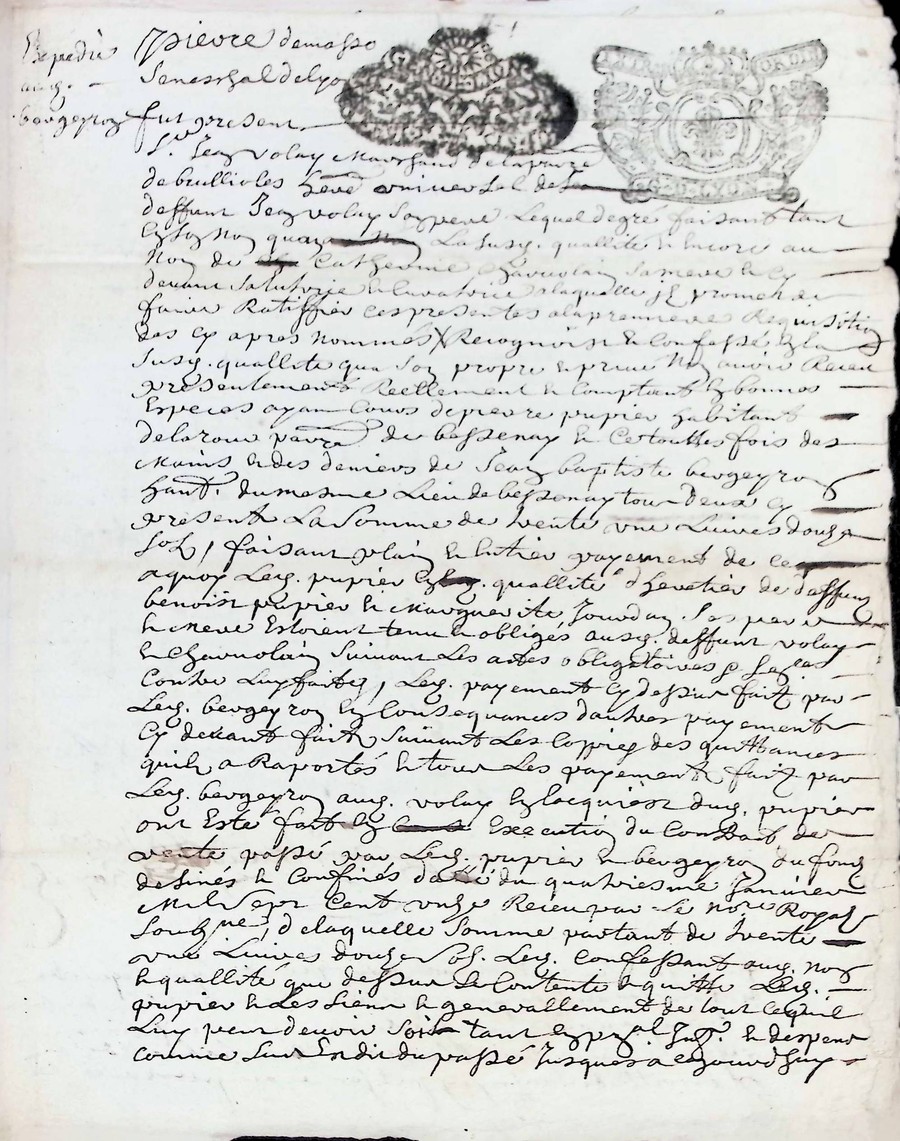 Expedié
aud.
bergeyron
pierre demasso
Seneschal de lyo
fut present
EXTR ORDIN
G. D. LYON
Sr. Jean volay Marchand de la parr.
de brullioles here universel de
deffunt Jean volay son pere Lequel de gré faisant tant
en son Nom qua La susd. quallité et encore au
Nom de Catherine sa mere et cy
devant sa tutrice et curatrice a laquelle il promet de
faire Ratiffier ces presentes a la premiere Requisition
des cy apres nommés Recognoist et Confesse en la
susd. quallité que son propre et privé Nom avoir Receu
presentement Reellement et Comptant en bonnes
Especes ayant Cours de pierre pupier habitant
de la parr. de bessenay et Ce touttes fois des
Mains et des deniers de Jean baptiste bergeyron
habt. du mesme Lieu de bessenay tous deux cy
present La Somme de trente une Livres douze
sols, faisant plain et entier payement de ce
a quoy Led. pupier en quallité d'heretier de deffunt
benoist pupier et Marguerite Jourdan Ses pere
et Mere Estoient tenu et obligés aud. deffunt volay
et suivant Les actes obligatoires &
Contre Luy faites, Led. payement cy dessus fait par
Led. bergeyron en Consequances d'autres payement
cy devant fait suivant Les Coppies des quittances
quil a Raportés et tous Les payement fait par
Led. bergeyron aud. volay en lacquist dud. pupier
ont Esté fait en Execution du Contract de
vente passé par Led. pupier et bergeyron du fond
desinés et Confinés du quatriesme Janvier
Mil Sept Cent unze Receu par le Nore Royal
soubsne, de laquelle Somme partant de trente
une Livres douze sols. Led. Confessant aud. nom
et quallité que dessus se Contente et quitte Led.
pupier et Les siens et generallement de tout ce quil
Luy peut devoir soit tant en pal. Intt. et despens
comme sur Endit du passé Jusques a ce jourdhuy